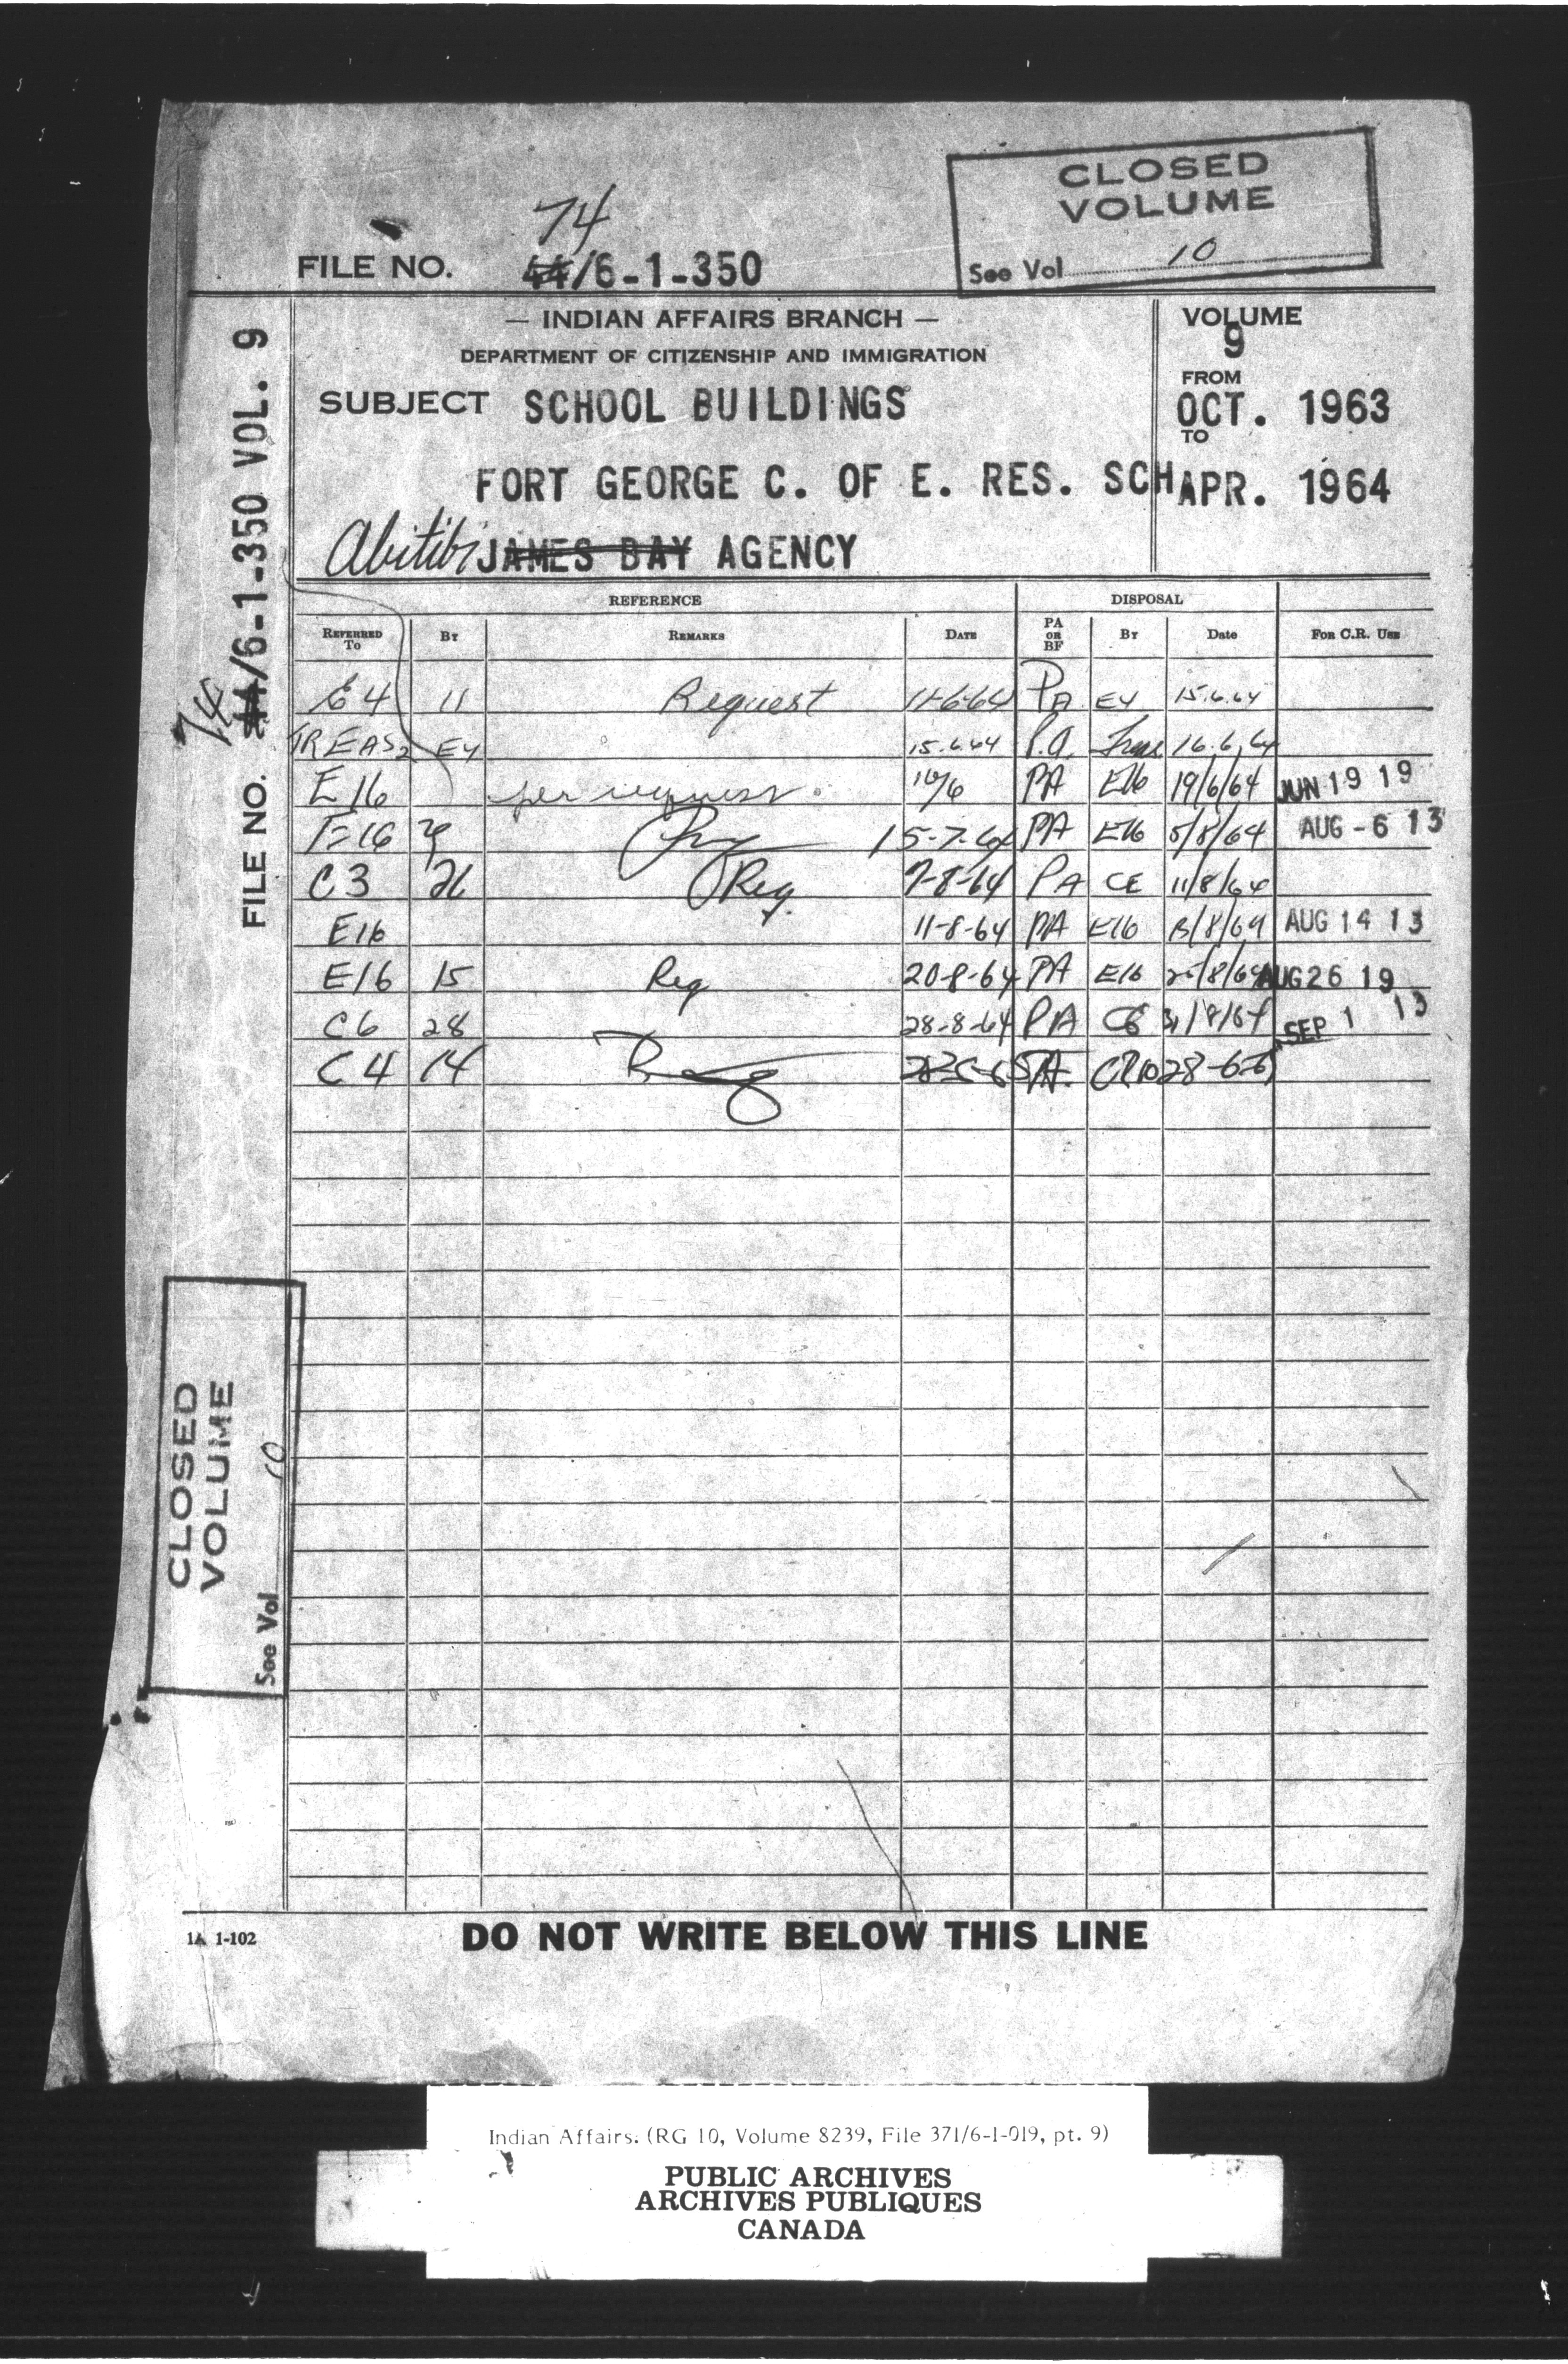 CLOSED
VOLUME
See Vol 10
74
FILE NO. 44/6-1-350
— INDIAN AFFAIRS BRANCH —
DEPARTMENT OF CITIZENSHIP AND IMMIGRATION
SUBJECT SCHOOL BUILDINGS
FORT GEORGE C. OF E. RES. SCH
Abitibi JAMES BAY AGENCY
VOLUME
9
FROM
OCT. 1963
TO
APR. 1964
FILE NO. 44/6-1-350 VOL. 9
74
REFERENCE DISPOSAL
REFERRED TO BY REMARKS DATE PA OR BF BY Date FOR C.R. USE
E4 11 Request 11-6-64 PA E4 15.6.64
TREAS E4 15.6.64 P.A. Treas 16.6.64
E16 per request. 16/6 PA E16 19/6/64 JUN 19 19
E16 15-7-64 PA E16 5/8/64 AUG - 6 13
C3 26 Req. 7-8-64 PA CE 11/8/64
E16 11-8-64 PA E16 13/8/64 AUG 14 13
E16 15 Req 20-8-64 PA E16 25/8/64 AUG 26 19
C6 28 28-8-64 PA C6 31/8/64 SEP 1 13
C4 14 PA. CR10 28-6-65
CLOSED
VOLUME
See Vol 10
1A 1-102
DO NOT WRITE BELOW THIS LINE
Indian Affairs. (RG 10, Volume 8239, File 371/6-1-019, pt. 9)
PUBLIC ARCHIVES
ARCHIVES PUBLIQUES
CANADA